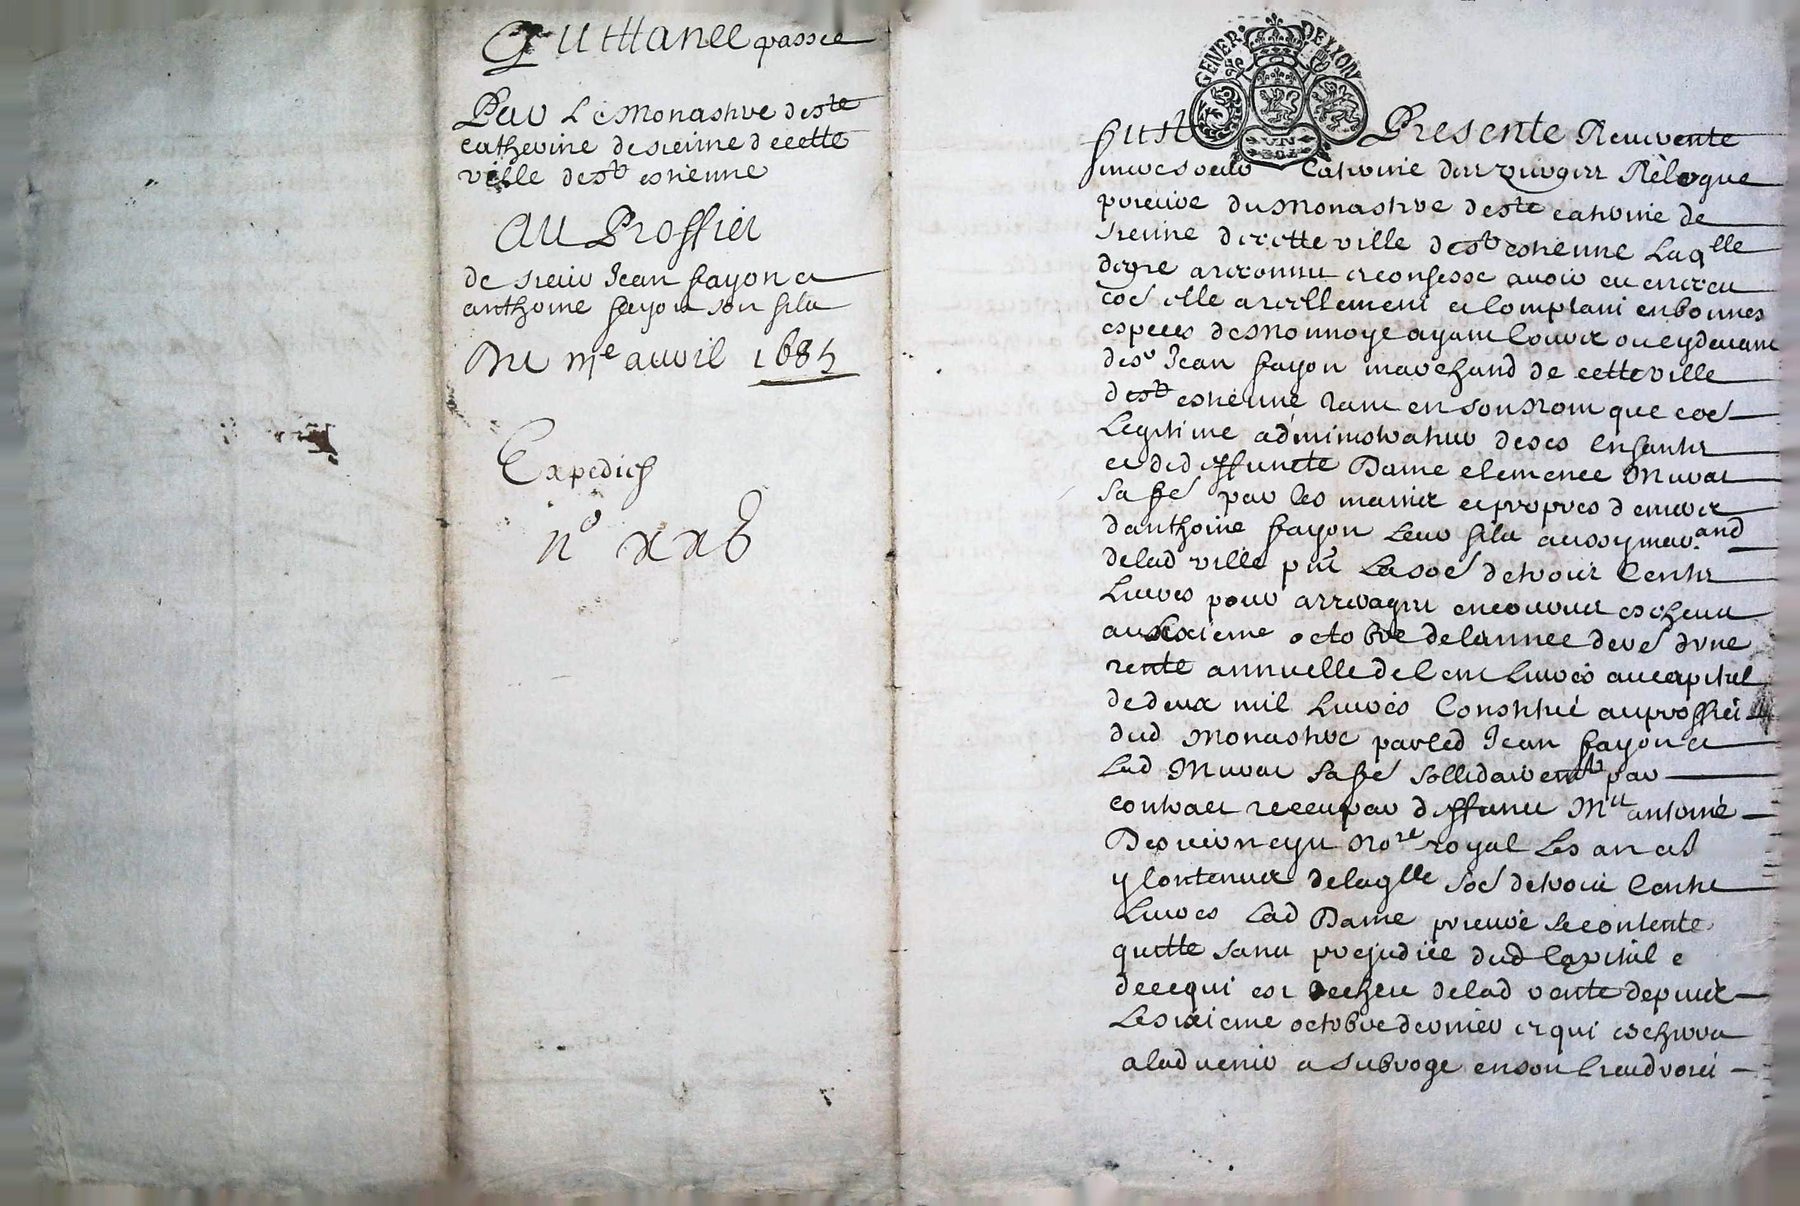 Quittance passee
Par Le Monastere de ste
catherine de sienne de cette
ville de st estienne
AU Proffict
de sieur Jean fayon et
anthoine fayon son fils
Du me avril 1685
Expedié
no xx6
GENER DE LION
UN SOL
fust Presente Reverente
mere soeur Catherine des Religse
prieure du Monastre de ste catrine de
sienne de cette ville de st estienne Laqlle
de gre a reconnu et confesse avoir eu et receu
coe elle a reellement et comptant en bonnes
especes de Monnoye ayant cours ou cy devant
de sr Jean fayon marchand de cette ville
de st estienne tant en son Nom que coe
Legitime administrateur de ses enfants
et de deffuncte Dame clemence Murat
sa fe par les mains et propres deniers
d'anthoine fayon Leur fils aussy march.and
de lad ville pnt La soe de trois cents
Livres pour arrerages encourus escheus
au sixieme octobre de l'annee dere d'une
rente annuelle de cent Livres au capital
de deux mil Livres Constitué au proffict
dud Monastre par led Jean fayon et
Lad Murat sa fe sollidairemt par
contract receu par deffunct Mre antoine
nore royal Les an et
y contenus de laqlle soe de trois cents
Livres Lad Dame prieure se contente
quitte sans prejudice dud Capital e
de ce qui est escheu de lad rente depuis
Le sixieme octobre dernier et qui escherra
a ladvenir a subroge en son lieu droict